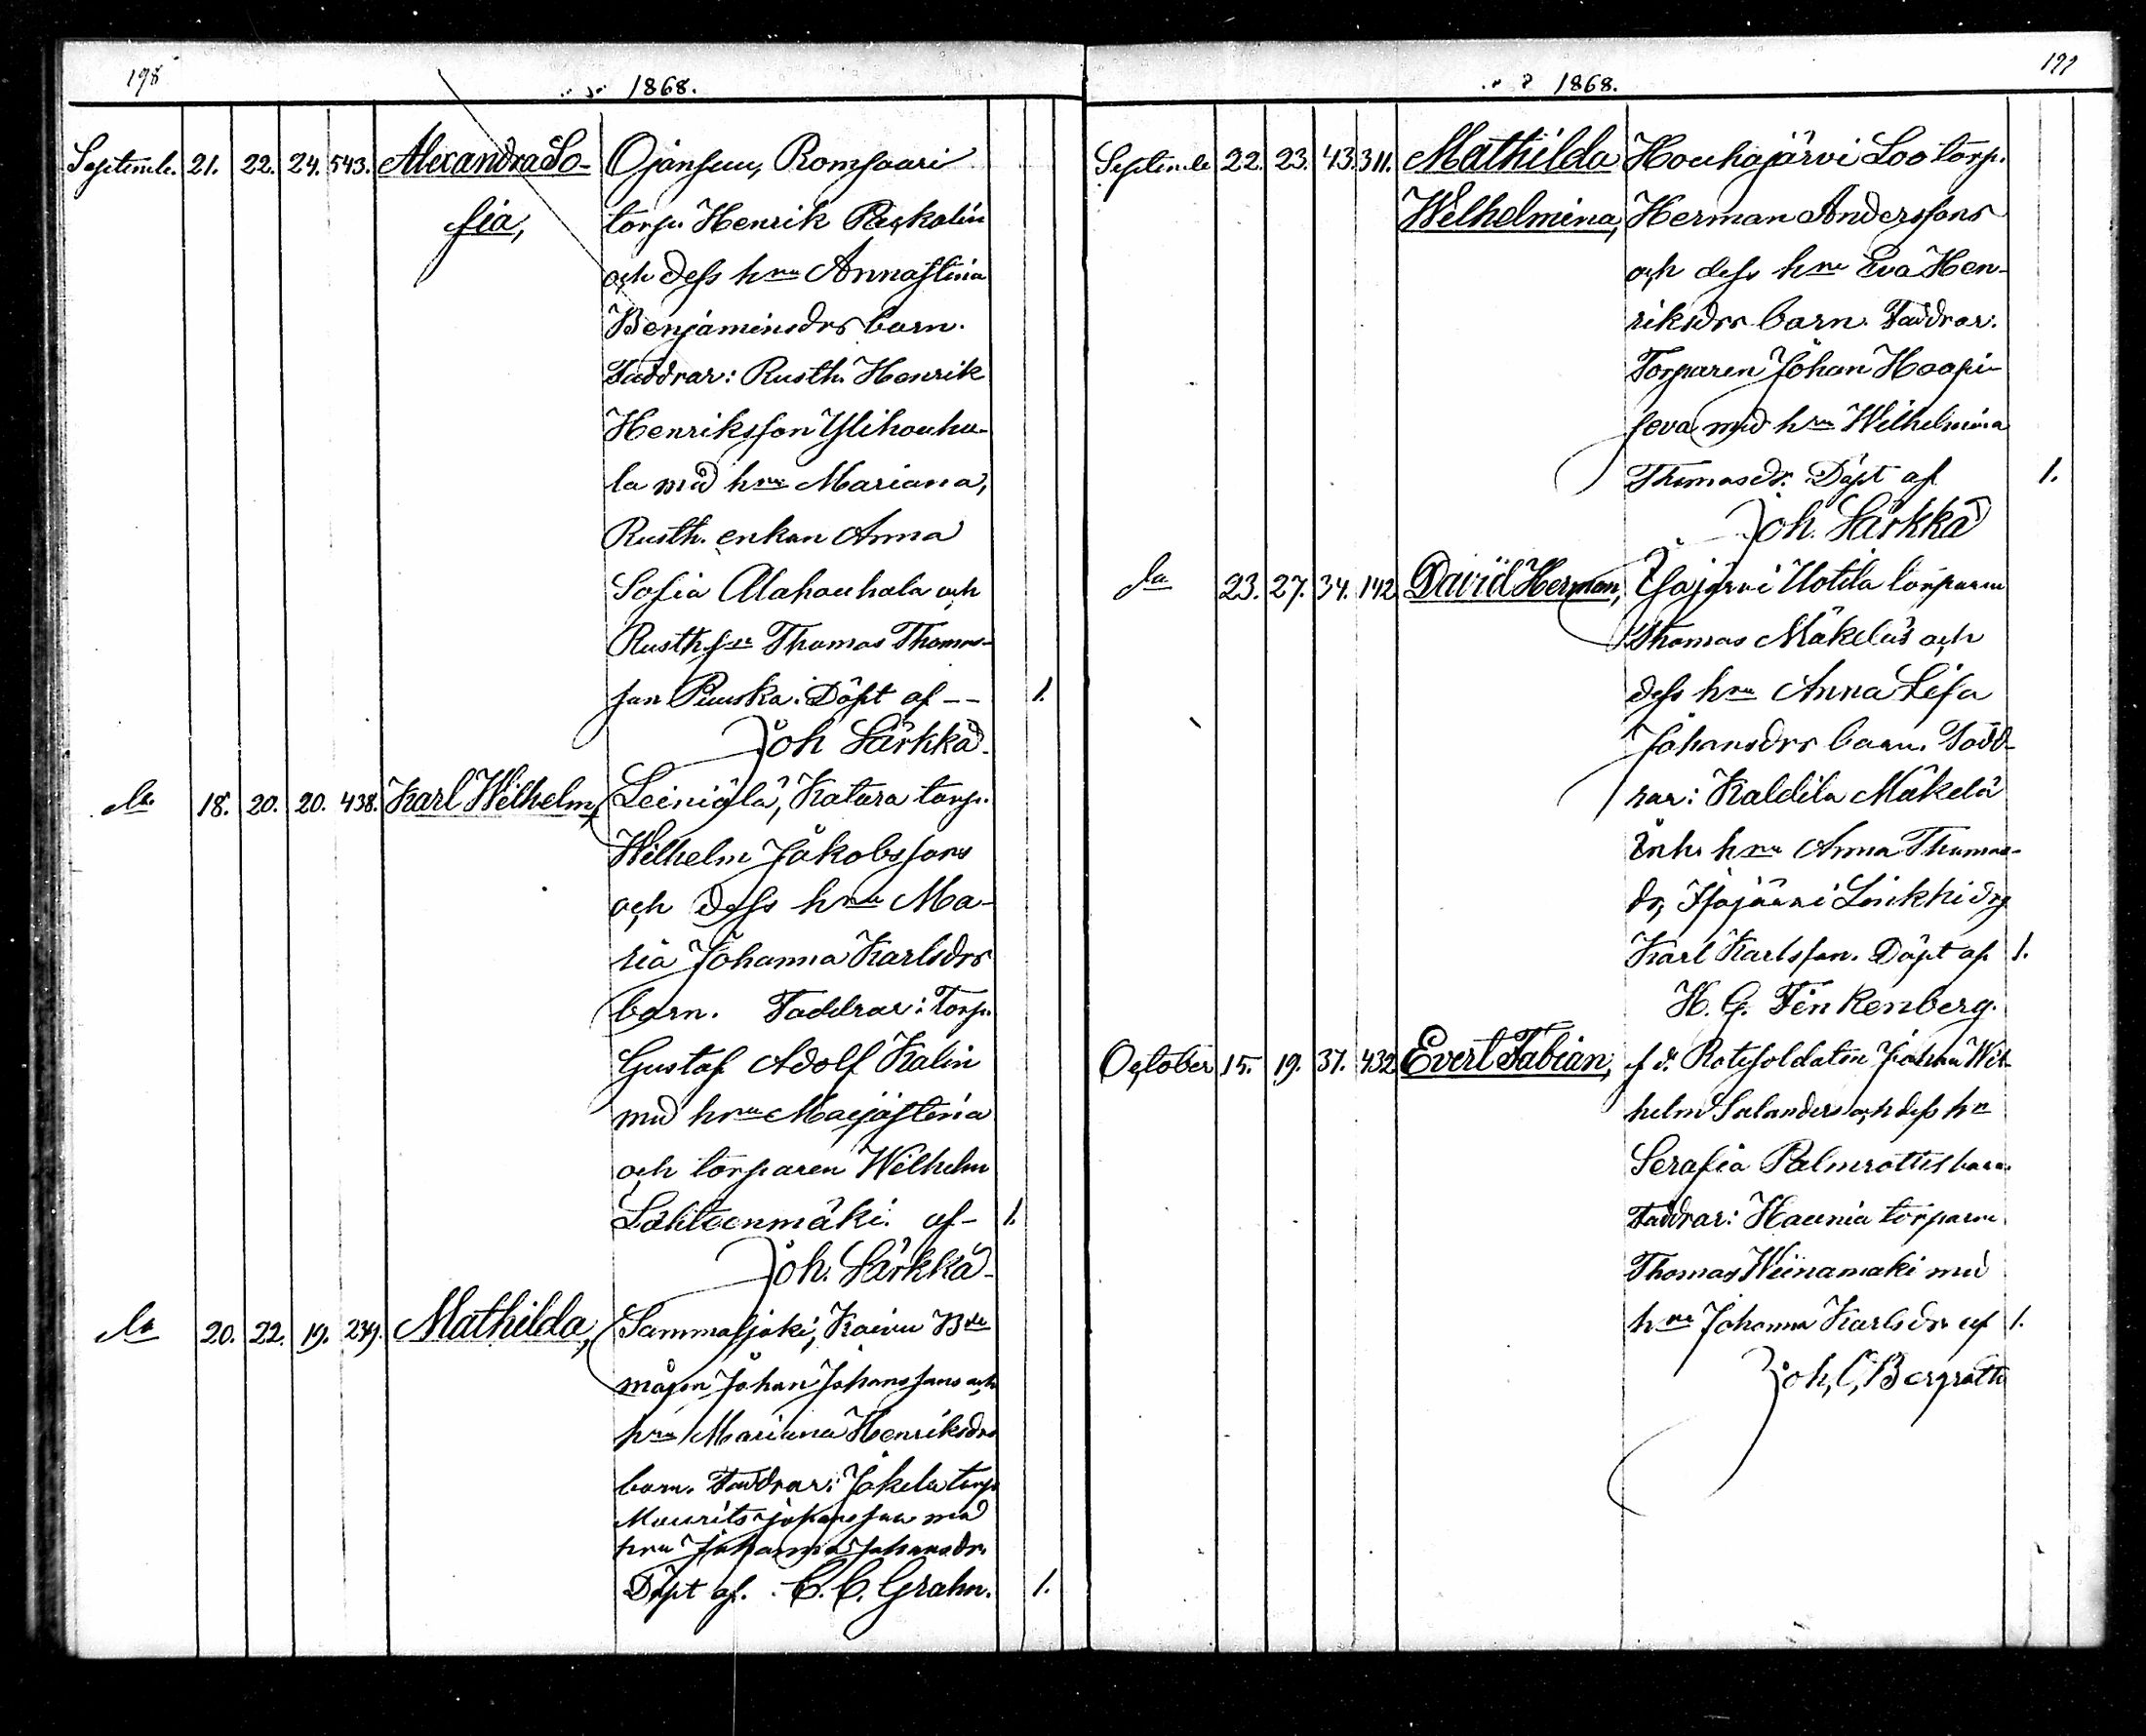 198
1868.
Septembr. 21. 22. 24. 543. Alexandra So- Ojansuu, Romsaari
fia, torp. Henrik Paskalin
och dess hru Annastina
Benjaminsdrs barn.
Faddrar: Rusth. Henrik
Henriksson Ylihouhu-
la med hru Mariana,
Rusth. enkan Anna
Sofia Alahouhala och
Rusth. sn Thomas Thomas-
son Puuska. Döpt af --
Joh Särkkä.
do 18. 20. 20. 438. Karl Wilhelm, Leiniälä, Katara torp.
Wilhelm Jakobssons
och dess hru Ma-
ria Johanna Karlsdrs
barn. Faddrar: Torp.
Gustaf Adolf Kalin
med hru Majastina
och torparen Wilhelm
Lähteenmäki. af - 1.
Joh. Särkkä.
do 20. 22. 19. 239. Mathilda, Sammaljoki, Kaivu
mågen Johan Johanssons och
hru Mariana Henriksdrs
barn. Faddrar: Jakela torp.
Maurits Johansson med
hru Johanna Johansdr.
Döpt af. C. C. Grahn. 1.
199
1868.
Septembr 22. 23. 43. 311. Mathilda Houhajärvi Loo torp.
Wilhelmina, Herman Anderssons
och dess hru Eva Hen-
riksdrs barn. Faddrar:
Torparen Johan Haapi-
seva med hru Wilhelmina
Thomasdr. Döpt af 1.
Joh. Särkkä
do 23. 27. 34. 142 David Herman, Isajärvi Uotila torparen
Thomas Mäkeläs och
dess hru Anna Lisa
Johansdrs barn. Fadd-
rar: Kaldila Mäkelä
Enk. hru Anna Thomas-
dr, Isajärvi Linkki drg
Karl Karlsson. Döpt af 1.
H. G. Finkenberg.
October 15. 19. 37. 432 Evert Fabian, f. d. Rotesoldaten Johan Wil-
helm Selanders och dess hru
Serafia Palmroths barn.
Faddrar: Haunia torparen
Thomas Wiinamaki med
hru Johanna Karlsdr. af 1.
Joh, C, Bergroth